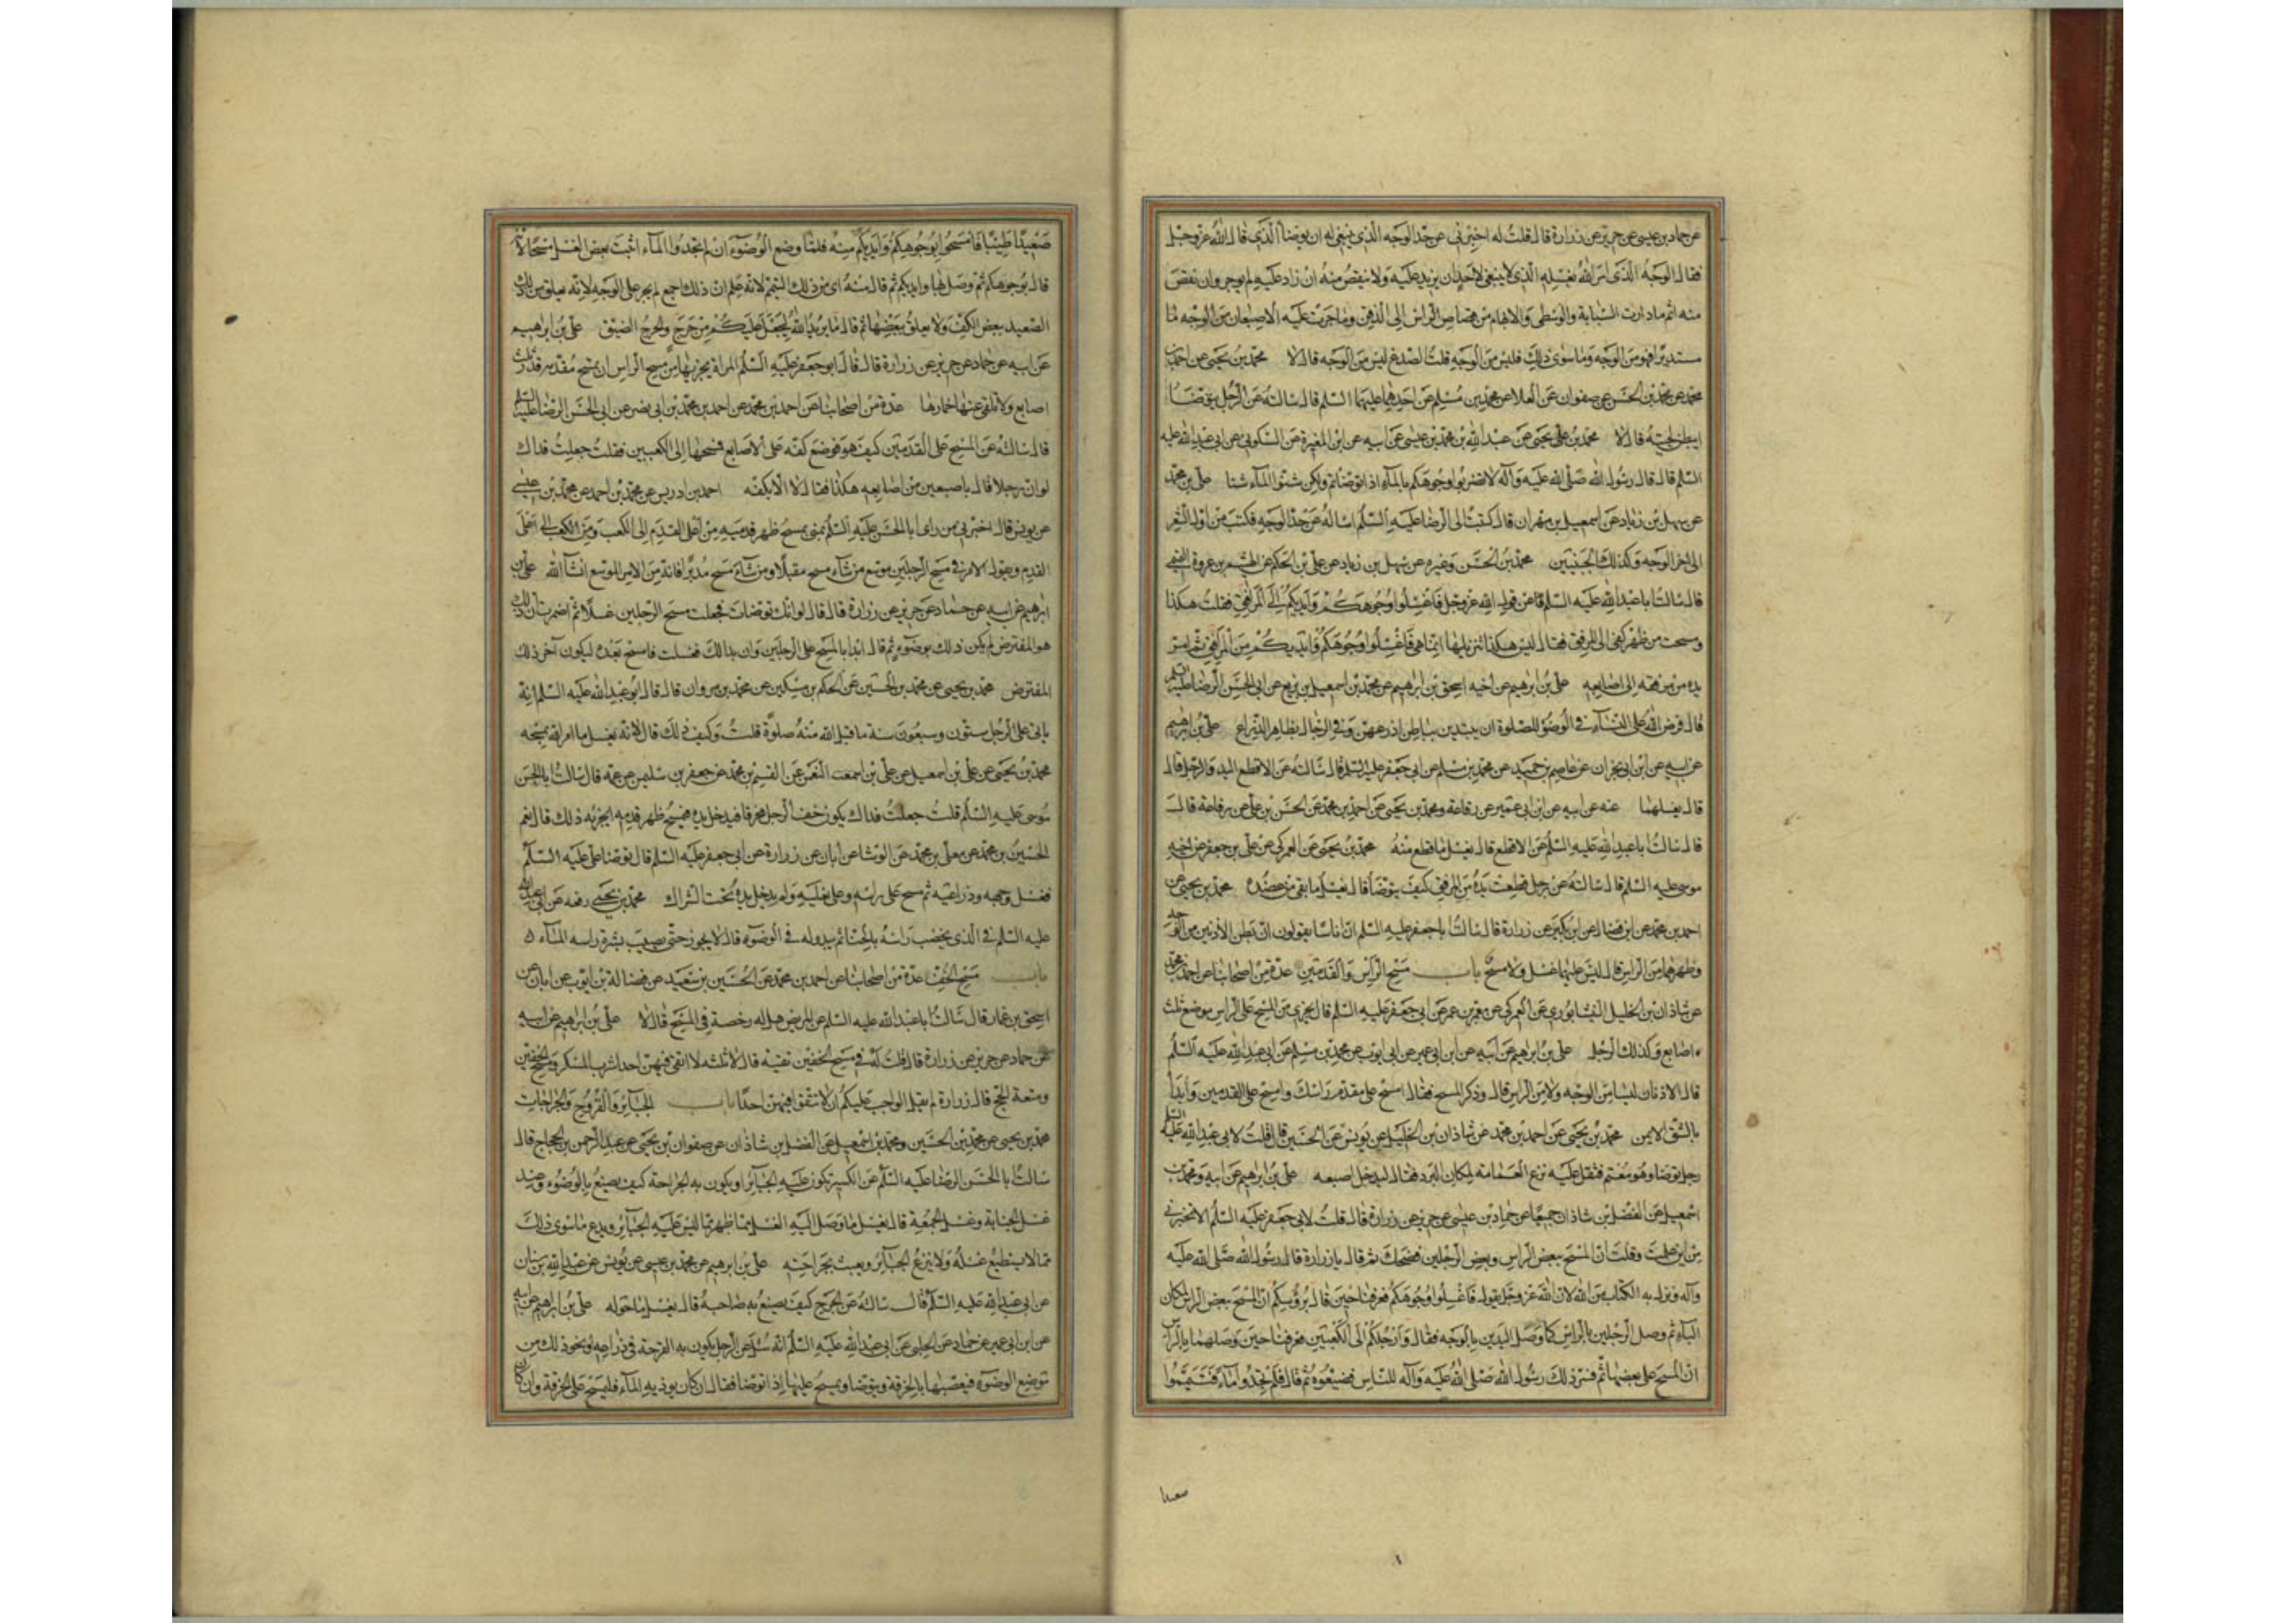 عن حماد بن عيسى عن حريز عن زرارة قال قلت له اخبرني عن حد الوجه الذي ينبغي له ان يوضأ الذي قال الله عز وجل
فقال الوجه الذي امر الله بغسله الذي لا ينبغي لاحد ان يزيد عليه ولا ينقص منه ان زاد عليه لم يوجر وان نقص
منه اثم ما دارت السبابة والوسطى والابهام من قصاص الراس الى الذقن وما جرت عليه الاصبعان من الوجه
مستديرا فهو من الوجه وما سوى ذلك فليس من الوجه قلت الصدغ ليس من الوجه قال لا محمد بن يحيى عن احمد بن
محمد عن محمد بن الحسين عن صفوان عن العلا عن محمد بن مسلم عن احدهما عليهما السلم قال سالته عن الرجل يتوضا
ايبطن لحيته قال لا محمد بن يحيى عن عبد الله بن محمد بن عيسى عن ابيه عن ابن المغيرة عن السكوني عن ابي عبد الله عليه
السلم قال قال رسول الله صلى الله عليه وآله لا تضربوا وجوهكم بالمآء اذا توضاتم ولكن شنوا المآء شنا علي بن محمد
عن سهل بن زياد عن اسمعيل بن مهران قال كتبت الى الرضا عليه السلم اساله عن حد الوجه فكتب من اول الشعر
الى اخر الوجه وكذلك الجبينين محمد بن الحسن وغيره عن سهل بن زياد عن علي بن الحكم عن الهيثم بن عروة التميمي
قال سالت ابا عبد الله عليه السلم عن قول الله عز وجل فاغسلوا وجوهكم وايديكم الى المرافق فقلت هكذا
ومسحت من ظهر كفي الى المرفق فقال ليس هكذا تنزيلها انما هي فاغسلوا وجوهكم وايديكم من المرافق ثم امر
يده من مرفقه الى اصابعه علي بن ابرهيم عن اخيه اسحق بن ابرهيم عن محمد بن اسمعيل بن بزيع عن ابي الحسن الرضا عليه السلم
قال فرض الله على النسآء في الوضوء للصلوة ان يبتدين بباطن اذرعهن وفي الرجال بظاهر الذراع علي بن ابرهيم
عن ابيه عن ابن ابي نجران عن عاصم بن حميد عن محمد بن مسلم عن ابي جعفر عليه السلم قال سالته عن الاقطع اليد والرجل قال
قال يغسلهما عنه عن ابيه عن ابن ابي عمير عن رفاعة ومحمد بن يحيى عن احمد بن محمد عن الحسن بن علي عن رفاعة قال
قال سالت ابا عبد الله عليه السلم عن الاقطع قال يغسل ما قطع منه محمد بن يحيى عن العمركي عن علي بن جعفر عن اخيه
موسى عليه السلم قال سالته عن رجل قطعت يده من المرفق كيف يتوضا قال يغسل ما بقي من عضده محمد بن يحيى عن
احمد بن محمد عن ابن فضال عن ابن بكير عن زرارة قال سالت ابا جعفر عليه السلم ان اناسا يقولون ان بطن الاذنين من الوجه
وظهرهما من الراس قال ليس عليهما غسل ولا مسح باب مسح الراس والقدمين عدة من اصحابنا عن احمد بن محمد
عن شاذان بن الخليل النيشابوري عن معمر بن عمر عن ابي جعفر عليه السلم قال يجزي من المسح على الراس موضع ثلث
اصابع وكذلك الرجل علي بن ابرهيم عن ابيه عن ابن ابي عمير عن ابي ايوب عن محمد بن مسلم عن ابي عبد الله عليه السلم
قال الاذنان ليسا من الوجه ولا من الراس قال وذكر المسح فقال امسح على مقدم راسك وامسح على القدمين وابدا
بالشق الايمن محمد بن يحيى عن احمد بن محمد عن شاذان بن الخليل عن يونس عن الحسين قال قلت لابي عبد الله عليه السلم
رجل توضا وهو معتم فثقل عليه نزع العمامة لمكان البرد فقال ليدخل اصبعه علي بن ابرهيم عن ابيه ومحمد بن
اسمعيل عن الفضل بن شاذان جميعا عن حماد بن عيسى عن حريز عن زرارة قال قلت لابي جعفر عليه السلم الا تخبرني
من اين علمت وقلت ان المسح ببعض الراس وبعض الرجلين فضحك ثم قال يا زرارة قال رسول الله صلى الله عليه
وآله ونزل به الكتاب من الله لان الله عز وجل يقول فاغسلوا وجوهكم فعرفنا حين قال برؤسكم ان المسح ببعض الراس لمكان
البآء ثم وصل الرجلين بالراس كما وصل اليدين بالوجه فقال وارجلكم الى الكعبين فعرفنا حين وصلهما بالراس
ان المسح على بعضها ثم فسر ذلك رسول الله صلى الله عليه وآله للناس فضيعوه ثم قال فلم تجدوا مآء فتيمموا
صعيدا
صعيدا طيبا فامسحوا بوجوهكم وايديكم منه فلما وضع الوضوء ان لم تجدوا المآء اثبت بعض الغسل مسحا لانه
قال بوجوهكم ثم وصل بها وايديكم ثم قال منه اي من ذلك التيمم لانه علم ان ذلك اجمع لم يجر على الوجه لانه يعلق من ذلك
الصعيد ببعض الكف ولا يعلق ببعضها ثم قال ما يريد الله ليجعل عليكم من حرج والحرج الضيق علي بن ابرهيم
عن ابيه عن حماد عن حريز عن زرارة قال قال ابو جعفر عليه السلم المراة يجزيها من مسح الراس ان تمسح مقدمه قدر ثلث
اصابع ولا تلقي عنها خمارها عدة من اصحابنا عن احمد بن محمد عن احمد بن محمد بن ابي نصر عن ابي الحسن الرضا عليه السلم
قال سالته عن المسح على القدمين كيف هو فوضع كفه على الاصابع فمسحها الى الكعبين فقلت جعلت فداك
لو ان رجلا قال باصبعين من اصابعه هكذا فقال لا الا بكفه احمد بن ادريس عن محمد بن احمد عن محمد بن عيسى
عن يونس قال اخبرني من راى ابا الحسن عليه السلم بمنى يمسح ظهر قدميه من اعلى القدم الى الكعب ومن الكعب الى اعلى
القدم ويقول الامر في مسح الرجلين موسع من شآء مسح مقبلا ومن شآء مسح مدبرا فانه من الامر الموسع انشآ الله علي بن
ابرهيم عن ابيه عن حماد عن حريز عن زرارة قال قال لو انك توضات فجعلت مسح الرجلين غسلا ثم اضمرت ان ذلك
هو المفترض لم يكن ذلك بوضوء ثم قال ابدا بالمسح على الرجلين وان بدا لك غسل فغسلت فامسح بعده ليكون آخر ذلك
المفترض محمد بن يحيى عن محمد بن الحسين عن الحكم بن مسكين عن محمد بن مروان قال قال ابو عبد الله عليه السلم انه
ياتي على الرجل ستون وسبعون سنة ما قبل الله منه صلوة قلت وكيف ذلك قال لانه يغسل ما امر الله بمسحه
محمد بن يحيى عن علي بن اسمعيل عن علي بن النعمن عن القسم بن محمد عن جعفر بن سليمن عن عمه قال سالت ابا الحسن
موسى عليه السلم قلت جعلت فداك يكون خف الرجل مخرقا فيدخل يده فيمسح ظهر قدمه ايجزيه ذلك قال نعم
الحسين بن محمد عن معلى بن محمد عن الوشا عن ابان عن زرارة عن ابي جعفر عليه السلم قال توضا علي عليه السلم
فغسل وجهه وذراعيه ثم مسح على راسه وعلى نعليه ولم يدخل يده تحت الشراك محمد بن يحيى رفعه عن ابي عبد الله
عليه السلم في الذي يخضب راسه بالحنا ثم يبدو له في الوضوء قال لا يجوز حتى يصيب بشرة راسه المآء
باب مسح الخف عدة من اصحابنا عن احمد بن محمد عن الحسين بن سعيد عن فضالة بن ايوب عن ابان عن
اسحق بن عمار قال سالت ابا عبد الله عليه السلم عن المريض هل له رخصة في المسح قال لا علي بن ابرهيم عن ابيه
عن حماد عن حريز عن زرارة قال قلت له في مسح الخفين تقية قال لا ثلثة لا اتقي فيهن احدا شرب المسكر ومسح الخفين
ومتعة الحج قال زرارة لم يقل الواجب عليكم ان لا تتقوا فيهن احدا باب الجبآئر والقروح والجراحات
محمد بن يحيى عن محمد بن الحسين ومحمد بن اسمعيل عن الفضل بن شاذان عن صفوان بن يحيى عن عبد الرحمن بن الحجاج قال
سالت ابا الحسن الرضا عليه السلم عن الكسير تكون عليه الجبائر او يكون به الجراحة كيف يصنع بالوضوء وعند
غسل الجنابة وغسل الجمعة قال يغسل ما وصل اليه الغسل مما ظهر مما ليس عليه الجبآئر ويدع ما سوى ذلك
مما لا يستطيع غسله ولا ينزع الجبآئر ويعبث بجراحته علي بن ابرهيم عن محمد بن عيسى عن يونس عن عبد الله بن سنان
عن ابي عبد الله عليه السلم قال سالته عن الجرح كيف يصنع به صاحبه قال يغسل ما حوله علي بن ابرهيم عن ابيه
عن ابن ابي عمير عن حماد عن الحلبي عن ابي عبد الله عليه السلم انه سئل عن الرجل يكون به القرحة في ذراعه او نحو ذلك من
توضع الوضوء فيعصبها بالخرقة ويتوضا ويمسح عليها اذا توضا فقال ان كان يوذيه المآء فليمسح على الخرقة وان كان